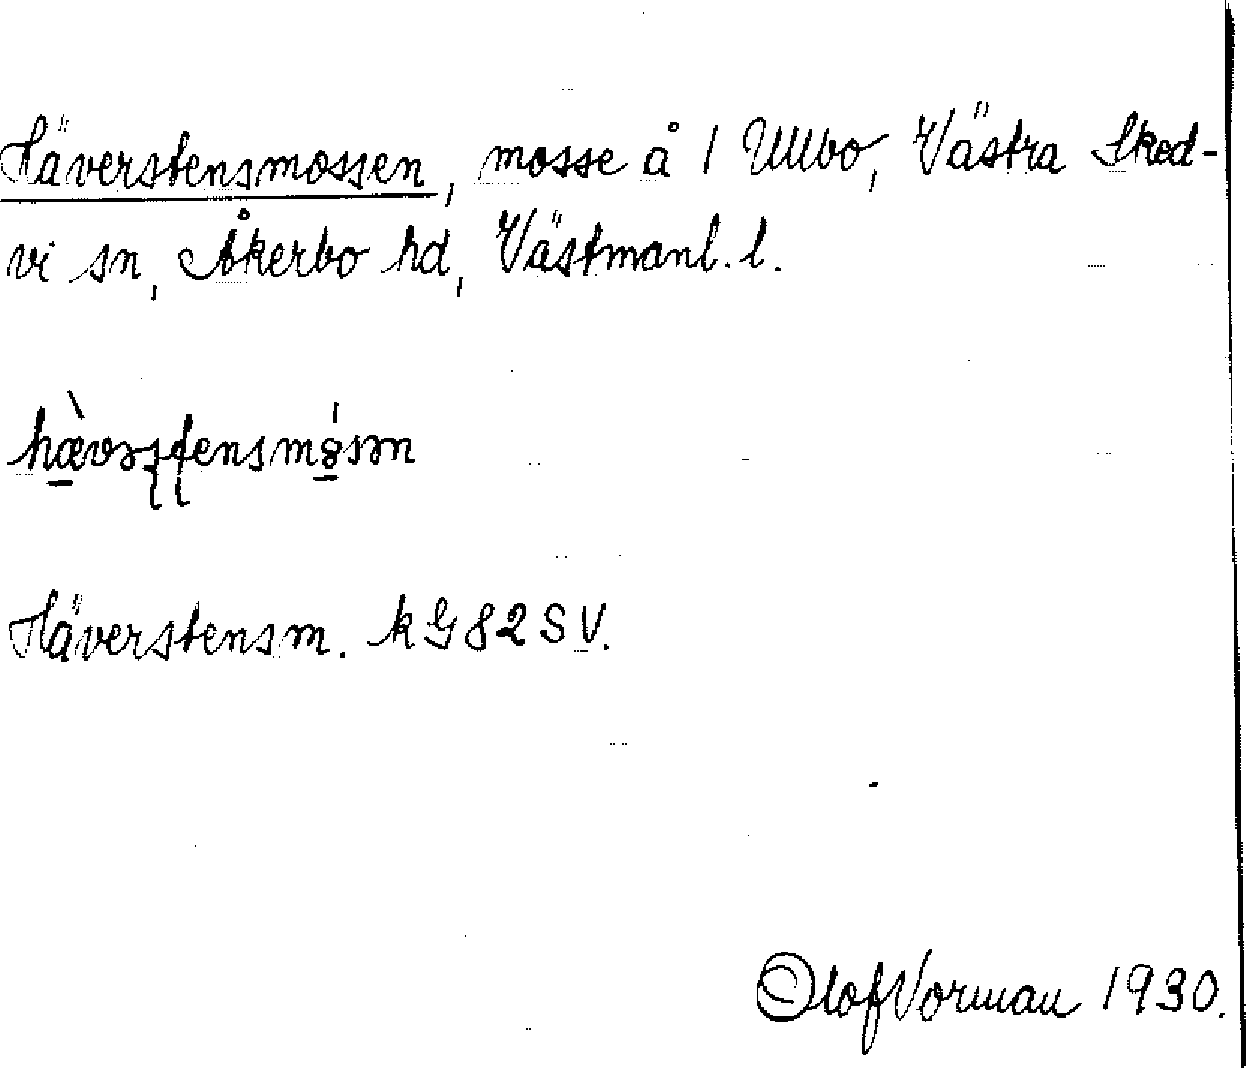 Häverstensmossen, mosse å 1 Ullbo, Västra Sked-
vi sn, Åkerbo hd, Västmanl. l.
Häverstensm. kG82SV.
Olof Vorman 1930.